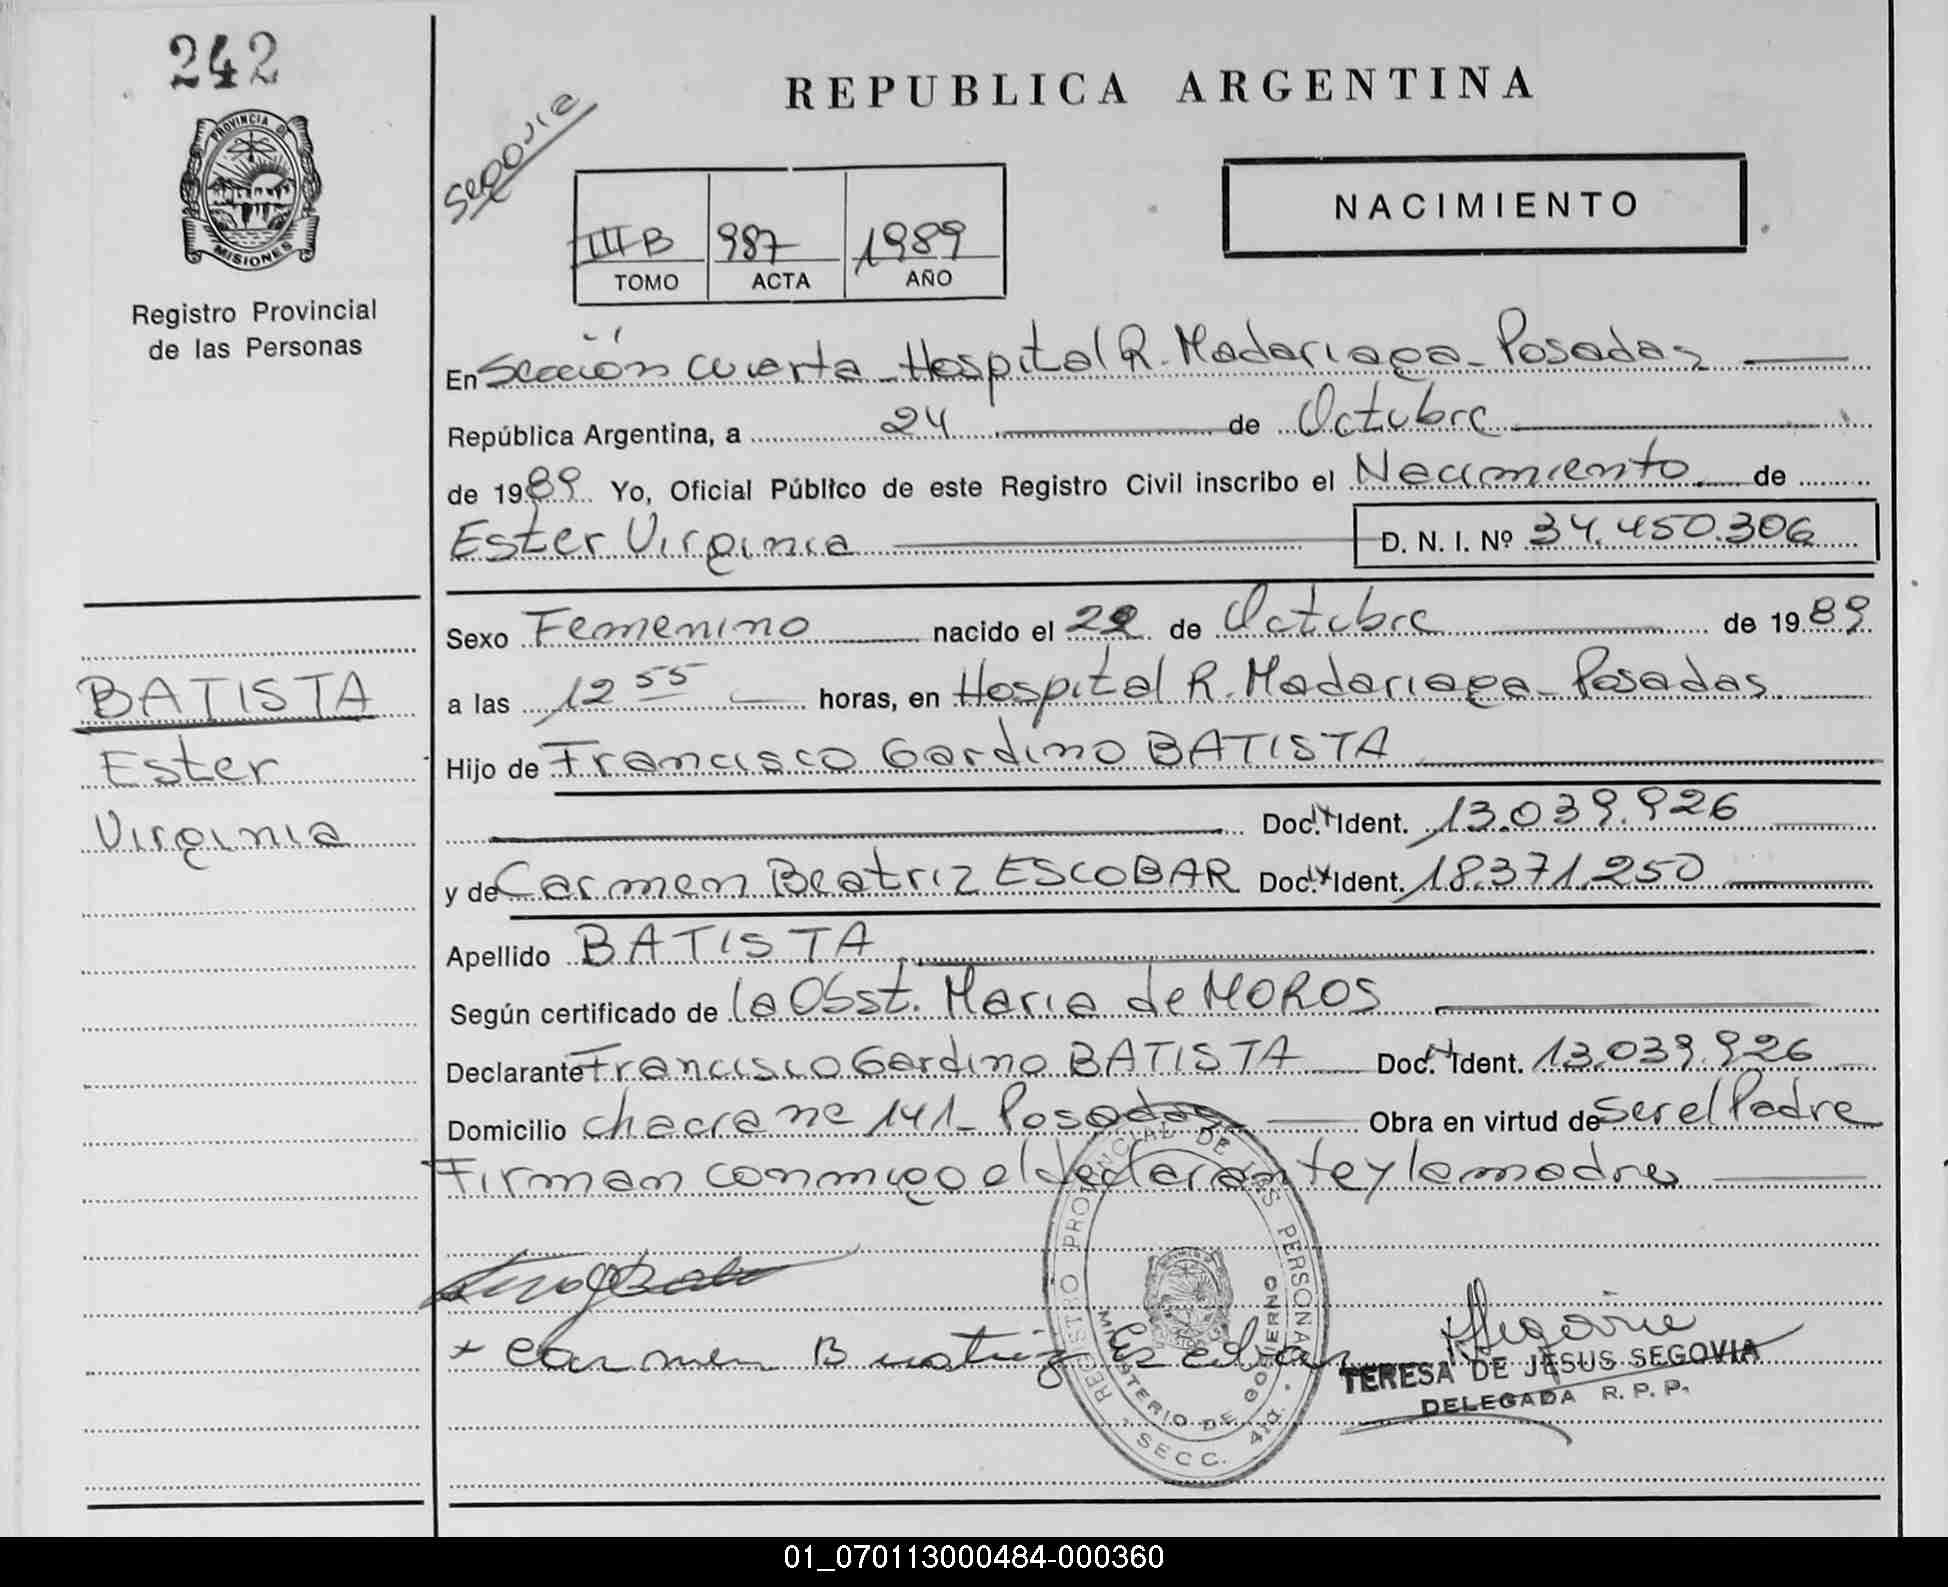 242
PROVINCIA DE
MISIONES
Registro Provincial
de las Personas
BATISTA
Ester
Virginia
Segovia
REPUBLICA ARGENTINA
NACIMIENTO
III B 987 1989
TOMO ACTA AÑO
En Sección cuarta - Hospital R. Madariaga - Posadas
República Argentina, a 24 de Octubre
de 1989 Yo, Oficial Público de este Registro Civil inscribo el Nacimiento de
Ester Virginia D. N. I. Nº 34.450.306
Sexo Femenino nacido el 22 de Octubre de 1989
a las 12 55 horas, en Hospital R. Madariaga - Posadas
Hijo de Francisco Gardino BATISTA
Doc. Ident. 13.039.926
y de Carmen Beatriz ESCOBAR Doc. Ident. 18.371.250
Apellido BATISTA
Según certificado de la Obst. Maria de MOROS
Declarante Francisco Gardino BATISTA Doc. Ident. 13.039.926
Domicilio chacra nº 141 - Posadas Obra en virtud de ser el Padre
Firman conmigo el declarante y la madre
REGISTRO PROVINCIAL DE LAS PERSONAS
MINISTERIO DE GOBIERNO
SECC. 4ta.
+ Carmen Beatriz Escobar
TERESA DE JESUS SEGOVIA
DELEGADA R. P. P.
01_070113000484-000360